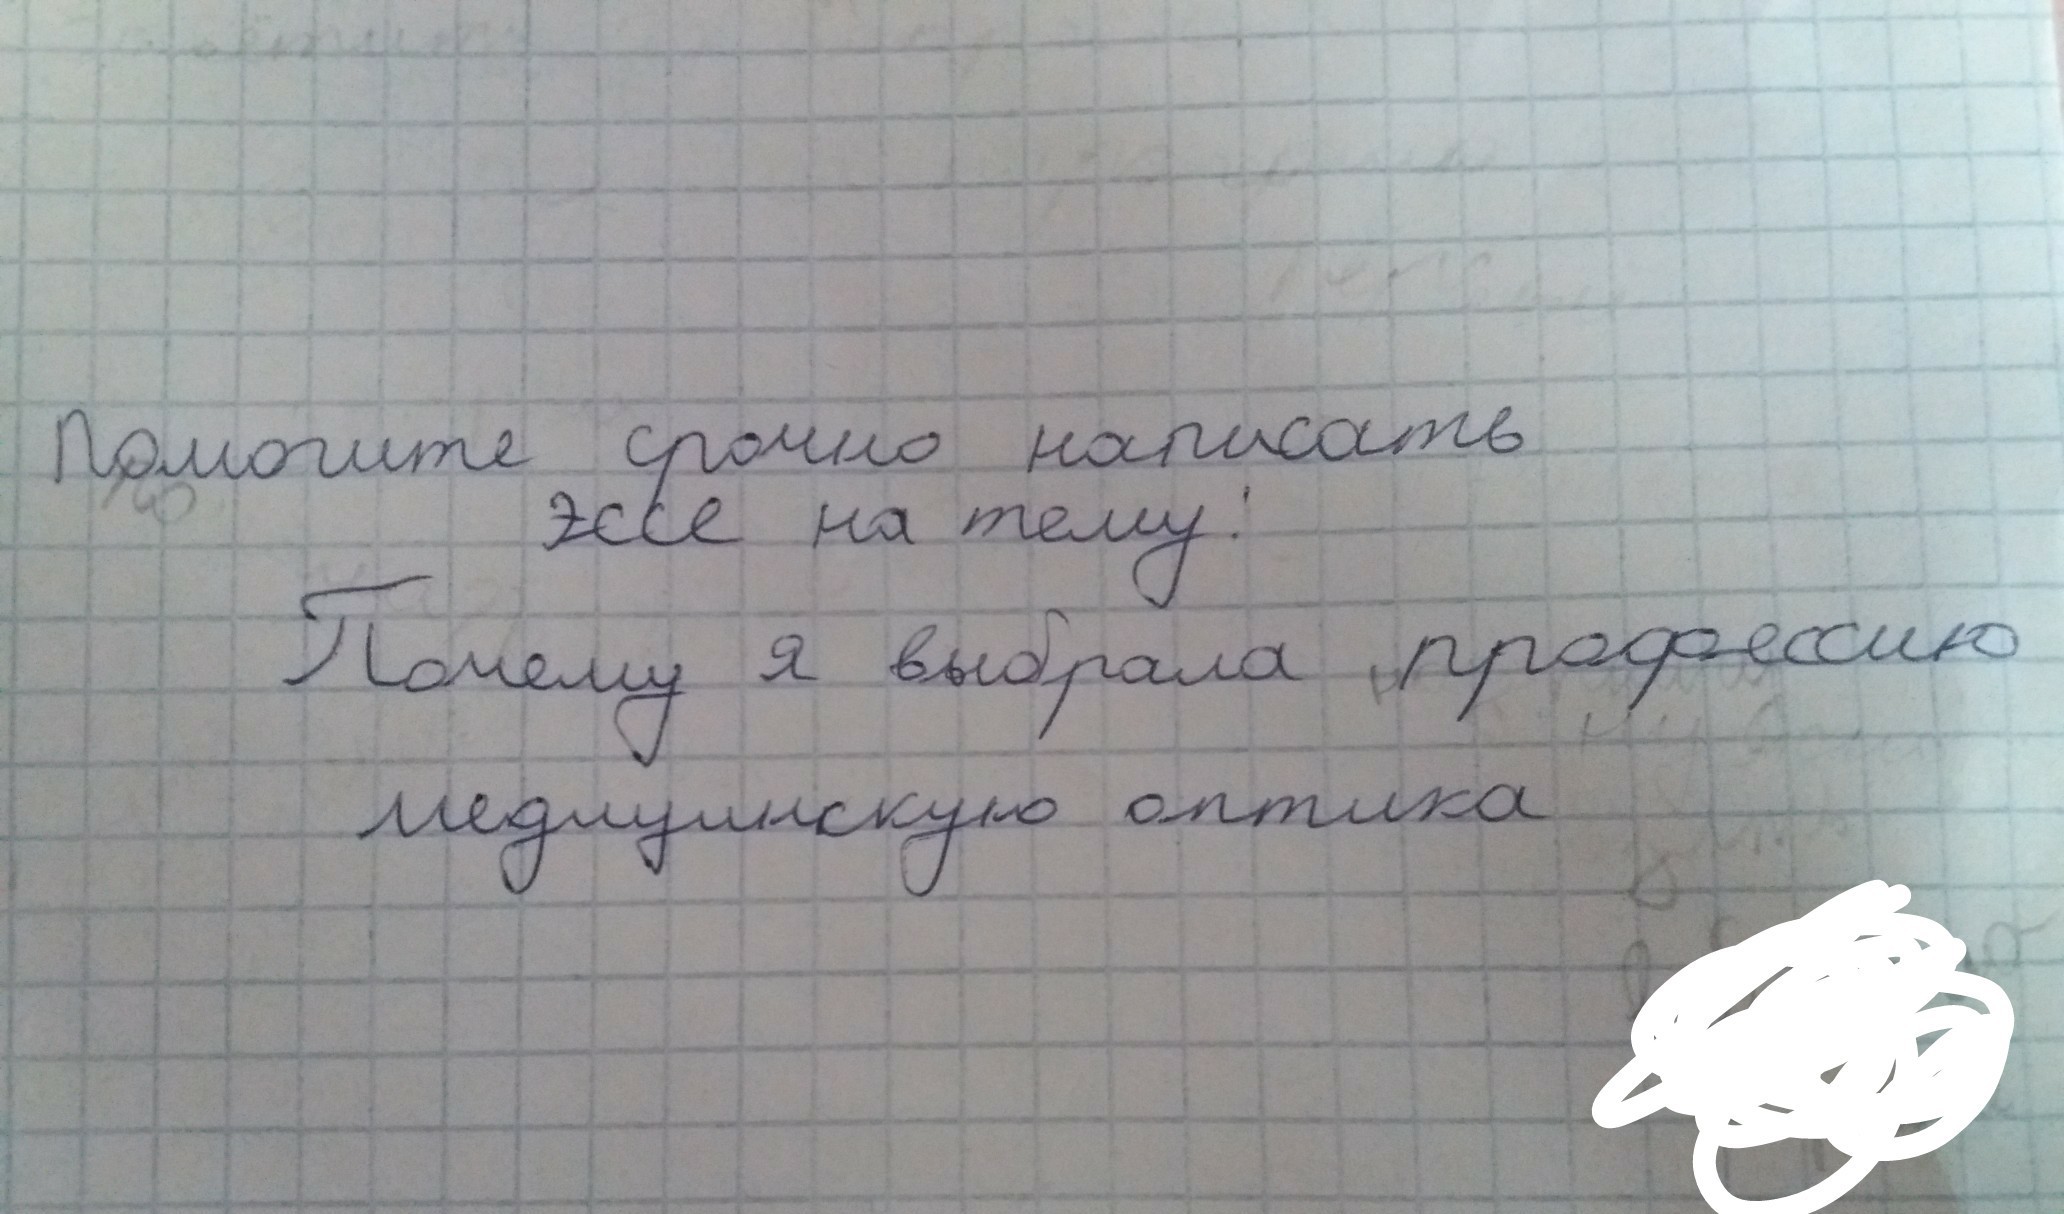 Помогите срочно написать
эссе на тему:
Почему я выбрала профессию
медицинскую оптика